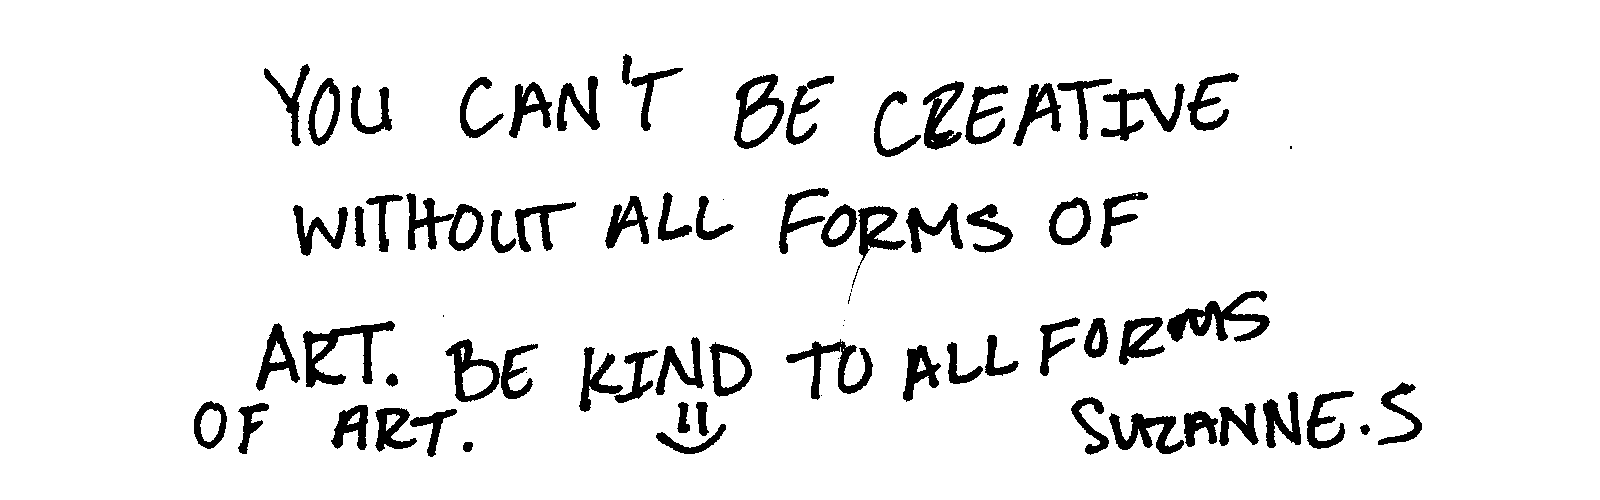 YOU CAN'T BE CREATIVE
WITHOUT ALL FORMS OF
ART. BE KIND TO ALL FORMS
OF ART.
SUZANNE.S